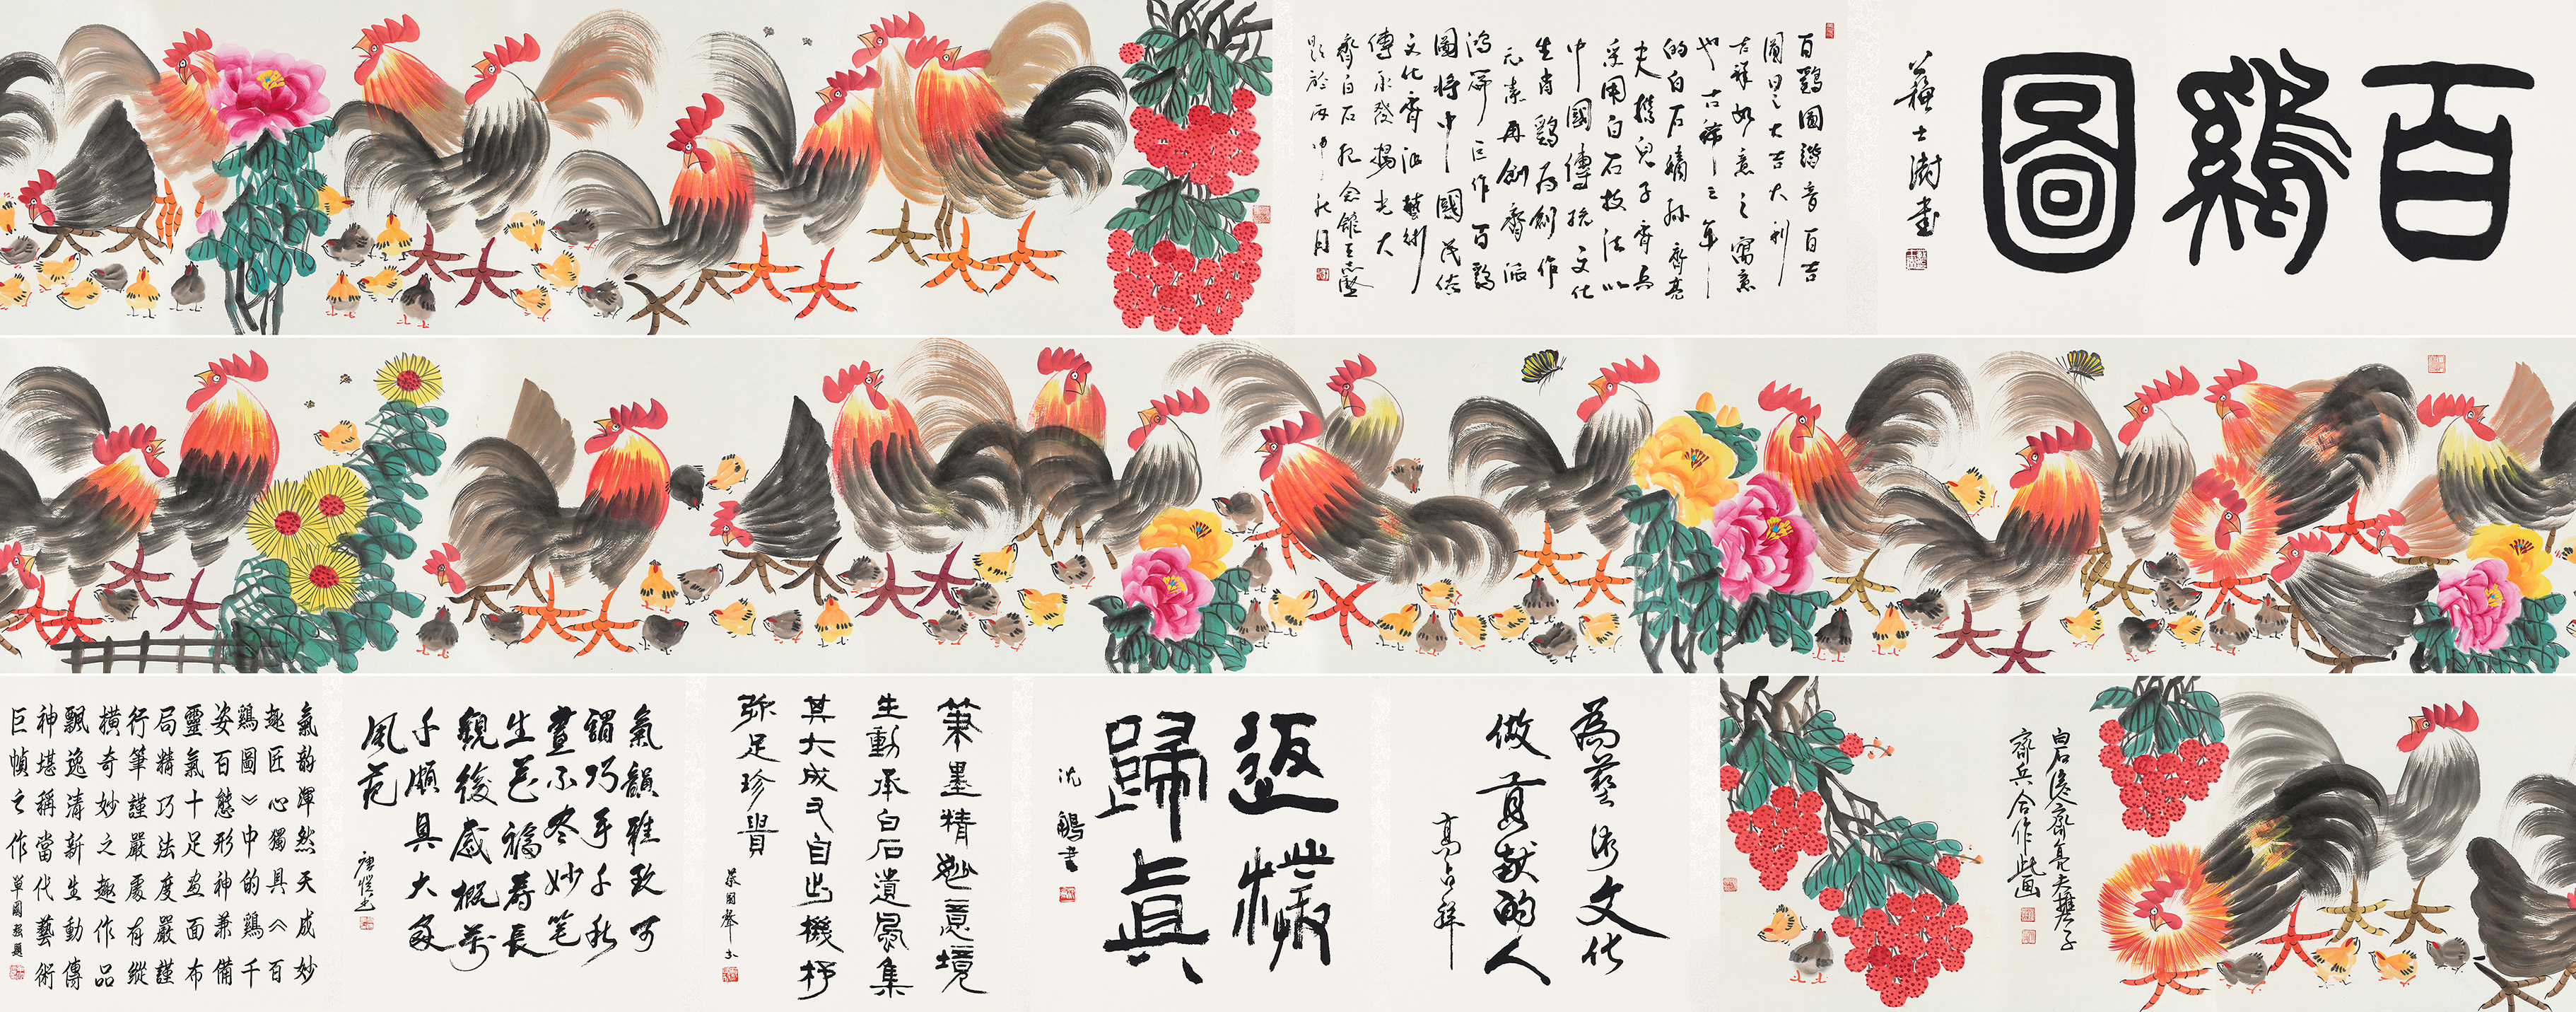 百鷄圖
蘇士澍書
百鷄圖諧音百吉
圖曰之大吉大利
吉祥如意之寓意
也古稀之年
的白石嫡孫齊亮
夫攜兒子齊兵
采用白石技法以
中國傳統文化
生肖鷄为創作
元素再創齊派
鴻篇巨作百鷄
圖将中國民俗
文化齊派藝術
傳承發揚光大
齊白石纪念館王志堅
題於丙申之秋月
白石後人齊亮夫攜子
齊兵合作此画
為藝術文化
做貢献的人
高占祥
返樸
歸真
沈鵬書
筆墨精妙意境
生動承白石遺風集
其大成又自出機杼
弥足珍貴
蔡國聲书
氣韻雅致可
謂巧手千秋
畫不尽妙笔
生花福寿長
觀後感概萬
千頗具大家
風范
氣韵渾然天成妙
趣匠心獨具《百
鷄圖》中的鷄千
姿百態形神兼備
靈氣十足畫面布
局精巧法度嚴謹
行筆謹嚴處有縱
橫奇妙之趣作品
飄逸清新生動傳
神堪稱當代藝術
巨幀之作
單國强題